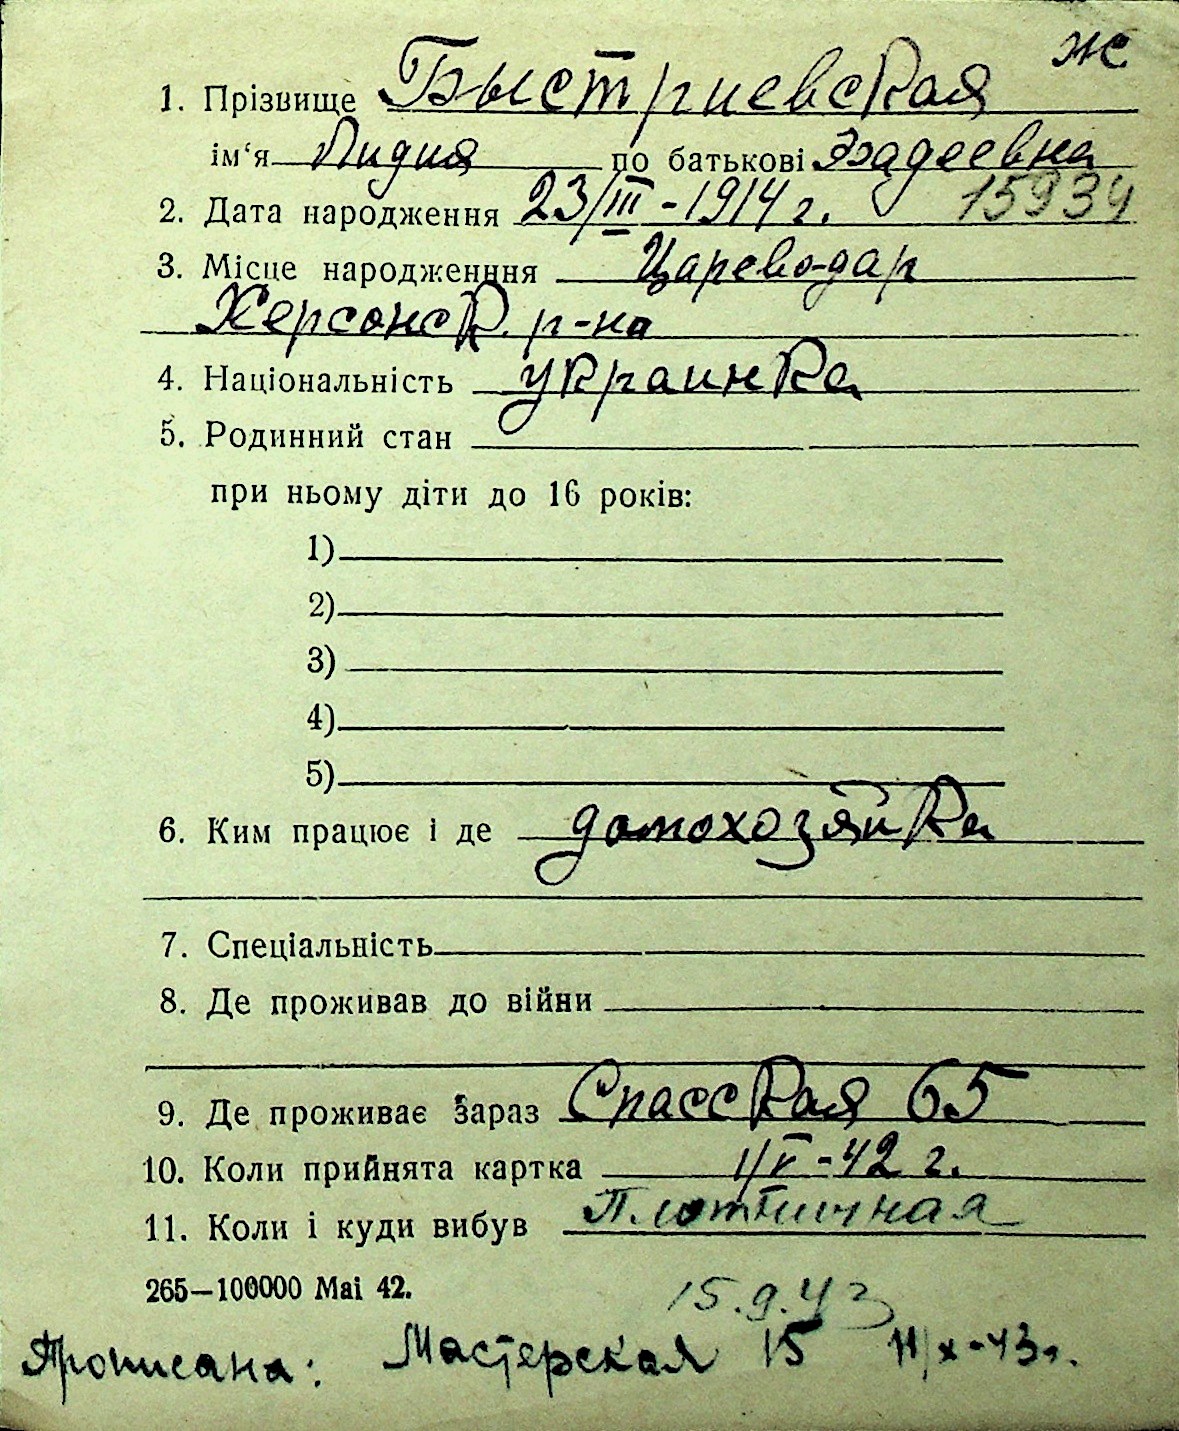 ж
1. Прізвище Быстриевская
ім'я Лидия по батькові Фадеевна
15934
2. Дата народження 23/III-1914 г.
3. Місце народженння Царево-дар
Херсонск. р-на
4. Національність украинка
5. Родинний стан
при ньому діти до 16 років:
1)
2)
3)
4)
5)
6. Ким працює і де домохозяйка
7. Спеціальність
8. Де проживав до війни
9. Де проживає зараз Спасская 65
10. Коли прийнята картка 1/V-42 г.
11. Коли і куди вибув Плотничная
265—100000 Mai 42.
15.9.43
Прописана: Мастерская 15 11/X-43г.